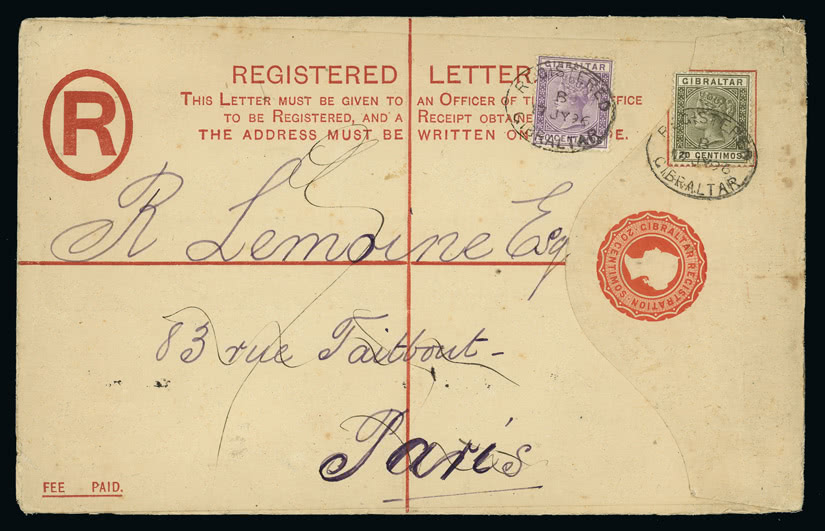 REGISTERED LETTER
THIS LETTER MUST BE GIVEN TO AN OFFICER OF FICE
TO BE REGISTERED, AND A RECEIPT OBTAINE
THE ADDRESS MUST BE WRITTEN ON E.
R
GIBRALTAR
REGISTERED
B
JY 96
GIBRALTAR
GIBRALTAR
20 CENTIMOS
REGISTERED
B
GIBRALTAR
GIBRALTAR REGISTRATION
20 CENTIMOS
R Lemoine Esq
83 rue Taitbout-
Paris
FEE PAID.